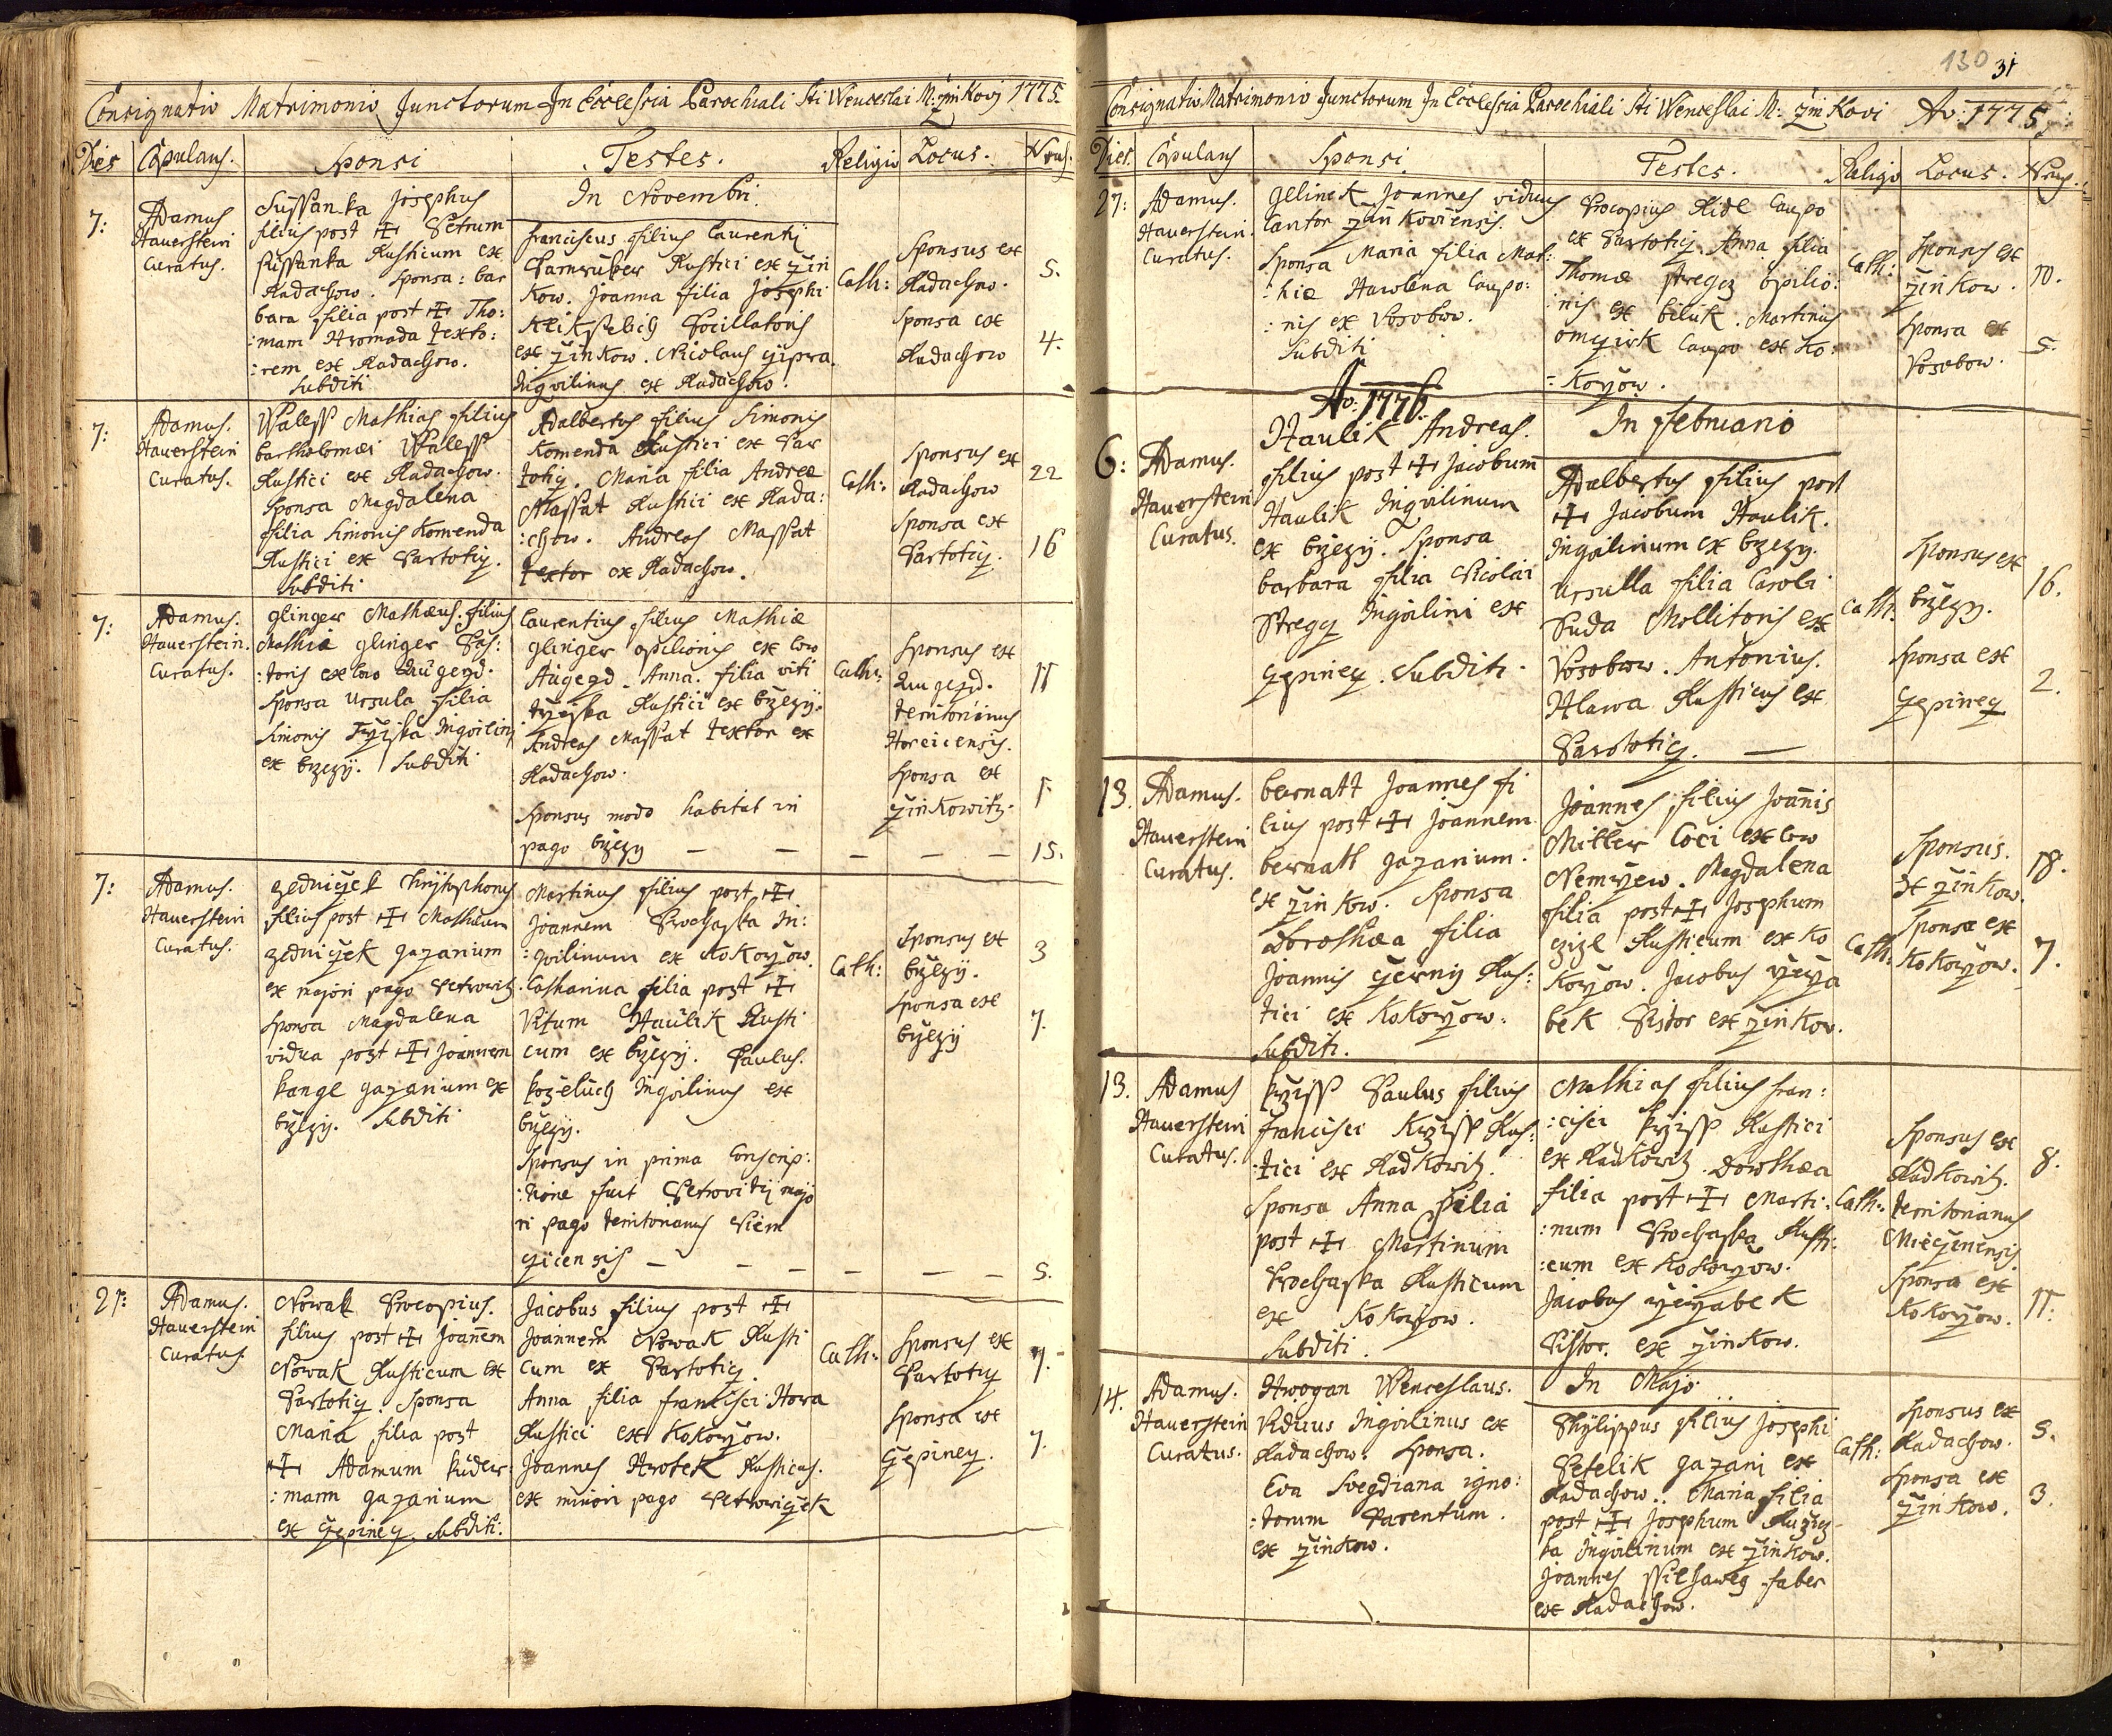 Consignatio Matrimonio Junctorum In Ecclesia Parochiali Sti Wenceslai M: žinkovi 1775.
Dies Copulans. Sponsi Testes. Religio Locus. Nrus.
In Novembri.
7:
Adamus
Hauerstein
Curatus.
Sussanka Josephus
filius post ☩ Petrum
Sussanka Rusticum ex
Radachow. Sponsa: bar
bara filia post ☩ Tho:
:mam Hromada texto:
:rem ex Radachow.
Subditi
Franciscus filius Laurentij
Rustici ex žin
kow. Joanna filia Josephi
Pocillatoris
ex žinkow. Nicolaus
Inqvilinus ex Radachow.
Cath:
Sponsus ex
Radachow.
Sponsa ex
Radachow
5.
4.
7:
Adamus.
Hauerstein
Curatus.
Waless Mathias filius
Bartholomæi Waless
Rustici ex Radachow.
Sponsa Magdalena
filia Simonis Komenda
Rustici ex Partotig.
Subditi
Adalbertus filius Simonis
Komenda Rustici ex Par
totig. Maria filia Andreæ
Massat Rustici ex Rada:
:chow. Andreas Massat
textor ex Radachow.
Cath:
Sponsus ex
Radachow
Sponsa ex
Partotig.
22
16
7:
Adamus.
Hauerstein.
Curatus.
glinger Mathæus filius
Mathiæ glinger Pas:
:toris ex low
Sponsa Ursula filia
Simonis Inqvilini
ex bžezy. Subditi
Laurentius filius Mathiæ
glinger opilionis ex low
Augezd. Anna filia Viti
Rustici ex bžezy.
Andreas Massat textor ex
Radachow.
Sponsus modo habitat in
pago bžezy — — — — —
Cath:
Sponsus ex
Augezd.
territorinus
Sponsa ex
žinkowitz.
11
1.
15.
7:
Adamus.
Hauerstein
Curatus.
zedniczek Christophorus
filius post ☩ Mathæum
zedniczek gazarium
ex majori pago Petrowitz.
Sponsa Magdalena
vidua post ☩ Joannem
kangl gazarium ex
bžezy. Subditi
Martinus filius post ☩
Joannem Prochaska In:
:qvilinum ex Kokoržow.
Catharina filia post ☩
Vitum Haulik Rusti
cum ex bžezy. Paulus.
koželuch Inqvilinus ex
bžezy.
Sponsus in prima Conscrip:
:tione fuit Petrovitij majo
ri pago territorianus
— — — — — —
Cath:
Sponsus ex
bžezy.
Sponsa ex
bžezy
3
7.
5.
21:
Adamus.
Hauerstein
Curatus.
Nowak Procopius.
filius post ☩ Joannem
Nowak Rusticum ex
Partotig. Sponsa
Maria filia post
☩ Adamum kuder:
:mann gazarium
ex Subditi.
Jacobus filius post ☩
Joannem Nowak Rusti
cum ex Partotig.
Anna filia Francisci Hora
Rustici ex Kokoržow.
Joannes Rusticus.
ex minori pago Petrowiczek
Cath:
Sponsus ex
Partotig
Sponsa ex
7.
7.
130 31
Consignatio Matrimonio Junctorum In Ecclesia Parochiali Sti Wenceslai M: žinkovi Ao: 1775.
Dies. Copulans Sponsi Testes. Religio Locus. Nrus.
27:
Adamus.
Hauerstein.
Curatus.
Jelinek Joannes viduus
Cantor žinkoviensis.
Sponsa Maria filia Mat:
:hiæ Hawlena Caupo:
:nis ex Vosobow.
Subditi
Procopius Ridl Caupo
ex Partotig. Anna filia
Thomæ opilio:
:nis ex biluk. Martinus
Caupo ex Ko:
:koržow.
Cath:
Sponsus ex
žinkow.
Sponsa ex
Vosobow.
10.
5.
Ao: 1776.
In Februario
6:
Adamus.
Hauerstein
Curatus.
Haulik Andreas.
filius post ☩ Jacobum
Haulik Inqvilinum
ex bžezy. Sponsa
barbara filia Nicolai
Inqvilini ex
Subditi.
Adalbertus filius post
☩ Jacobum Haulik.
Inqvilinum ex bžezy.
Ursulla filia Caroli
Suda Mollitoris ex
Vosobow. Antonius.
Hlawa Rusticus ex
Partotig. —
Cath.
Sponsus ex
bžezy.
Sponsa ex
16.
2.
13.
Adamus.
Hauerstein
Curatus.
bernatt Joannes fi
lius post ☩ Joannem
bernatt gazarium.
ex žinkow. Sponsa
Dorothæa filia
Joannis Rus:
tici ex Kokoržow.
Subditi.
Joannes filius Joannis
Miller Coci ex low
Magdalena
filia post ☩ Josephum
Rusticum ex Ko
koržow. Jacobus
bek Pistor ex žinkow.
Cath:
Sponsus.
ex žinkow.
Sponsa ex
Kokoržow.
18.
7.
13.
Adamus
Hauerstein
Curatus.
kržiss Paulus filius
Francisci Kržiss Rus:
:tici ex Radkowitz.
Sponsa Anna filia
post ☩ Martinum
Prochaska Rusticum
ex Kokoržow.
Subditi.
Mathias filius Fran:
:cisci kržiss Rustici
ex Radkowitz. Dorothæa
filia post ☩ Marti:
:num Prochaska Rusti:
:cum ex Kokoržow.
Jacobus
Pistor. ex žinkow.
Cath:
Sponsus ex
Radkowitz.
territorianus
Sponsa ex
Kokoržow.
8.
11.
In Majo
14.
Adamus.
Hauerstein
Curatus.
Hwogan Wenceslaus.
Viduus Inqvilinus ex
Radachow. Sponsa.
Eva igno:
:torum Parentum.
ex žinkow.
Phylippus filius Josephi
Petelik gazarij ex
Radachow. Maria filia
post ☩ Josephum
ka Inqvilinum ex žinkow.
Joannes faber
ex Radachow.
Cath:
Sponsus ex
Radachow.
Sponsa ex
žinkow.
5.
3.